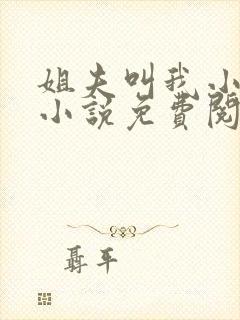 姐夫叫我小
小说免費閱
聶平